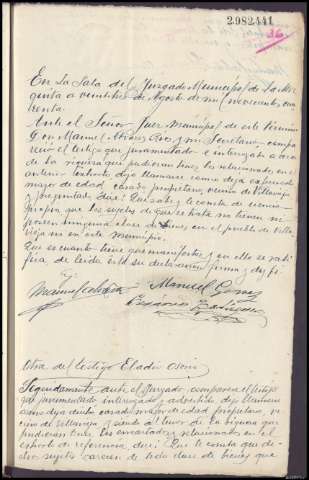 2982441
En la Sala del Juzgado Municipal de La Mez
quita a veintitres de Agosto de mil novecientos cua
renta.
Ante el Señor Juez Municipal de este termino
D. Manuel y mi Secretario, compa
reció el testigo que juramentado e interrogado acerca
de la riqueza que pudieran tener los relacionados en el
anterior dijo llamarse como deja expuesto
mayor de edad casado propietario, vecino de Villavieja
y preguntado, dice: Que sabe y le consta de ciencia
propia que los sujetos de que se trata no tienen ni
poseen ninguna clase de bienes, en el pueblo de Villa
vieja ni en este Municipio.
Que es cuanto tiene que manifestar, y en ello se rati
fica de leida esta su declaración firma y doy fé
Manuel Gómez
Otra del testigo Eladio Osorio
Seguidamente ante el Juzgado, comparece el testigo
que juramentado interrogado y advertido dijo llamarse
como deja dicho casado mayor de edad propietario, ve
cino de Villavieja y siendo a tenor de la riqueza que
pudieran tener los encartados relacionados en el
exhorto de referencia, dice: Que le consta que di-
chos sujetos carecen de toda clase de bienes que